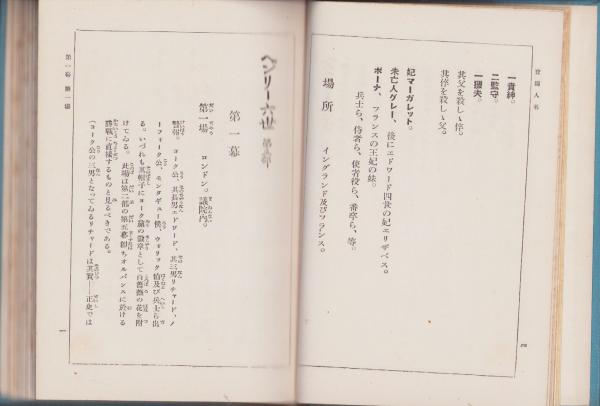 登場人名
一貴紳。
二監守。
一獵夫。
其父を殺しゝ倅。
其倅を殺しゝ父。
妃マーガレット。
未亡人グレー、後にエドワード四世の妃エリザベス。
ボーナ、フランスの王妃の妹。
兵士ら、侍者ら、使者役ら、番卒ら、等。
場所 イングランド及びフランス。
ヘンリー六世 第三部
第一幕
第一場 ロンドン。議院内。
警報。ヨーク公、其長男エドワード、其三男リチャード、ノ
ーフォーク公、モンタギュー侯、ウォリック伯及び兵士ら出
る。いづれも其帽子にヨーク黨の徽章として白薔薇の花を附
けてゐる。此場は第二部の第五幕、即ちオルバンスに於ける
勝戰に直接するものと見るべきである。
(ヨーク公の三男となつてゐるリチャードは其實――正史では
第一幕 第一場
一